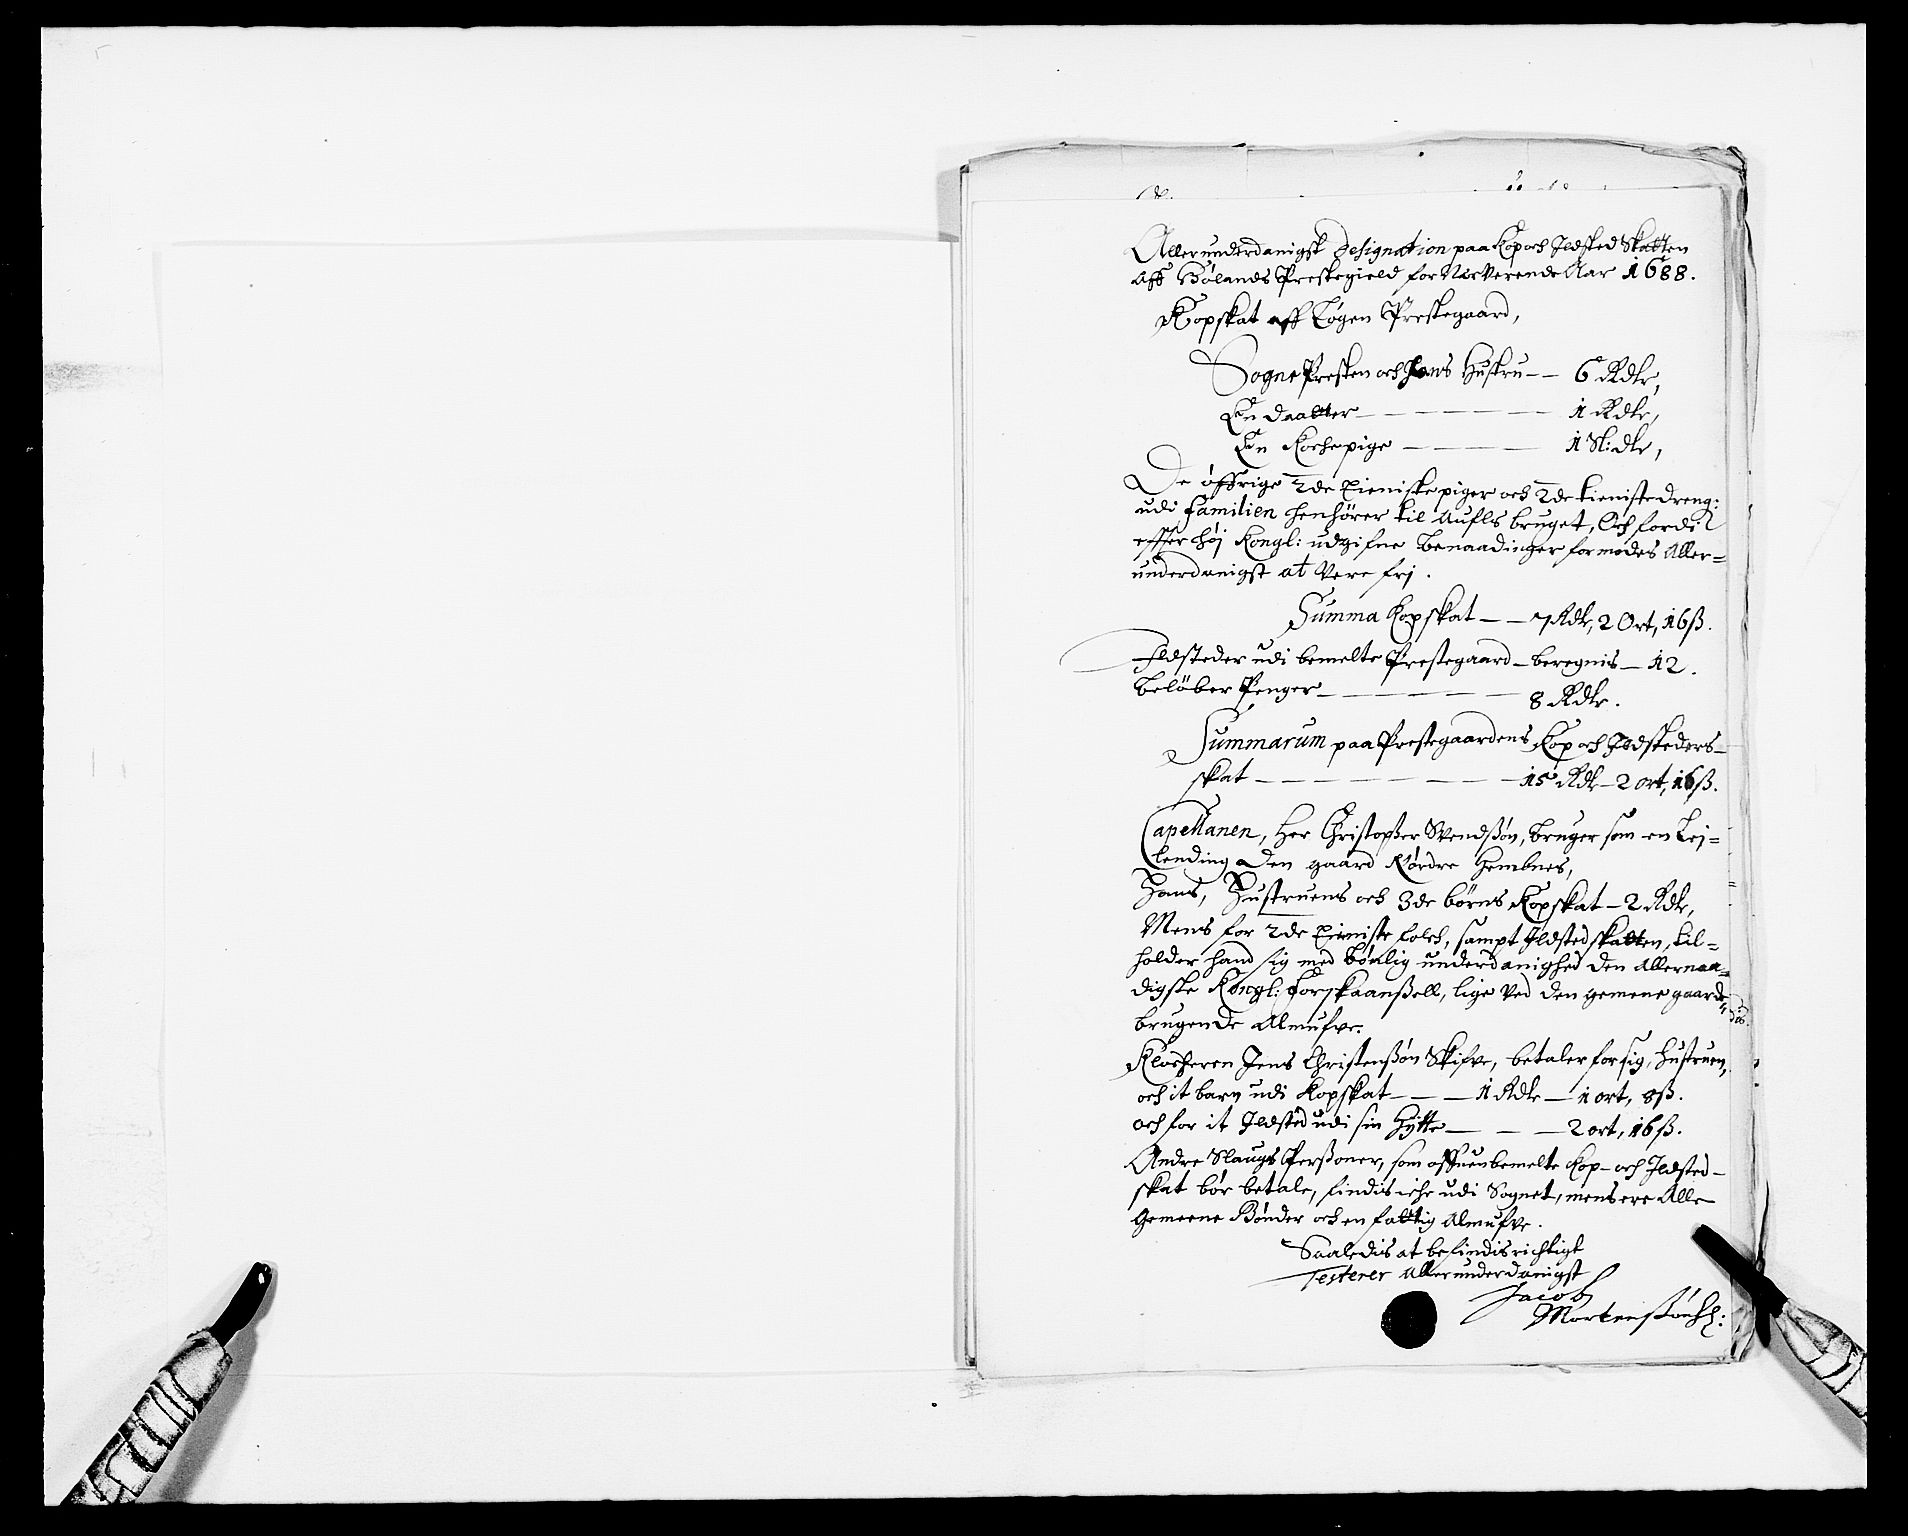 Allerunderdanigst Designation paa Kop och Ildsted Skatten
aff Bølands Prestegield for NerVerende Aar 1688.
Kopskat aff Løgen Prestegaard,
SognePresten och Hans Hustru — — 6 Rdlr,
En daatter — — — — — — 1 Rdlr,
En Kochepige — — — — — 1 Sl: dlr,
De öffrige 2de tieniste piger och 2de tienistedreng:
udi Familien henhörer til Aufls bruget, Och fordi
effter høj Kongl: udgifne benaadinger formodes Aller-
underdanigst at Vere frj.
Summa Kopskat — — 7 Rdlr, 2 Ort, 16 ß.
Ildsteder udi bemelte Prestegaard — beregnis — 12.
belöber Penger — — — — — 8 Rdlr.
Summarum paa Prestegaardens Kop och Ildsteders-
skat — — — — — — — — 15 Rdlr — 2 ort, 16 ß.
Capellanen, Her Christopher Svendßøn, bruger som en Lej-
lending den gaard Nørdre
Hans, Hustruens och 3de børns Kopskat — 2 Rdlr,
Mens for 2de tieniste folch, sampt Ildstedskatten, til-
holder hand sig med bønlig underdanighed den Allernaa-
digste Kongl: Forskaanßell, lige ved den gemene gaard-
brugende Almufve.
Klocheren Jens Christenßøn Skifve, betaler for sig, Hustruen,
och it barn udi Kopskat — — — 1 Rdlr — 1 ort, 8 ß.
och for it Ildsted udi sin Hytte — — — 2 ort, 16 ß.
Andre Slaugs Perßoner, som offuenbemelte Kop- och Ildsted-
skat bør betale, findis iche udi Sognet, mens ere Alle
Gemeene Bønder och en fattig Almufve.
Saaledis at befindis richtigt
Testerer Allerunderdanigst
Jacob